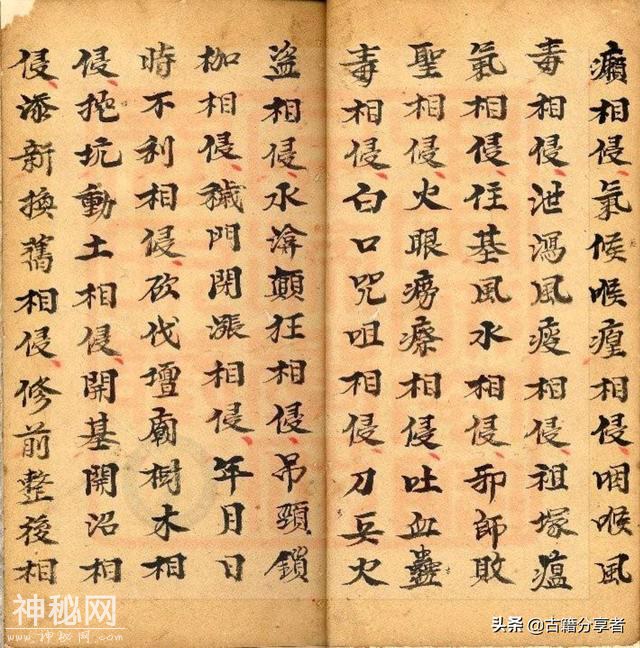 癩相侵氣候喉㾮相侵咽喉風
毒相侵泄瀉風瘦相侵祖塚瘟
氣相侵住基風水相侵邪師敗
聖相侵火眼癆瘵相侵吐血蠱
毒相侵白口咒咀相侵刀兵火
盜相侵水渰顛狂相侵吊頸鎖
枷相侵穢門閉漲相侵年月日
時不利相侵砍伐壇廟樹木相
侵挖坑動土相侵開基開沼相
侵添新換舊相侵修前整後相
神秘网
www.神秘网.com
头条 @古籍分享者